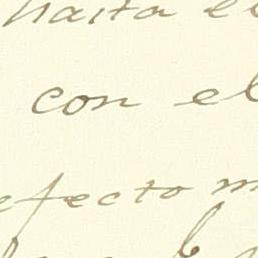 hasta el
con el
efecto m